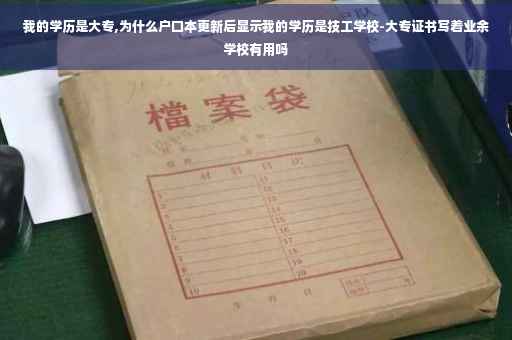 我的学历是大专,为什么户口本更新后显示我的学历是技工学校-大专证书写着业余
学校有用吗
檔案袋
材料目次
1
2
3
4
5
6
7
8
9
10
11
12
13
14
15
16
17
18
19
20
年 月 日